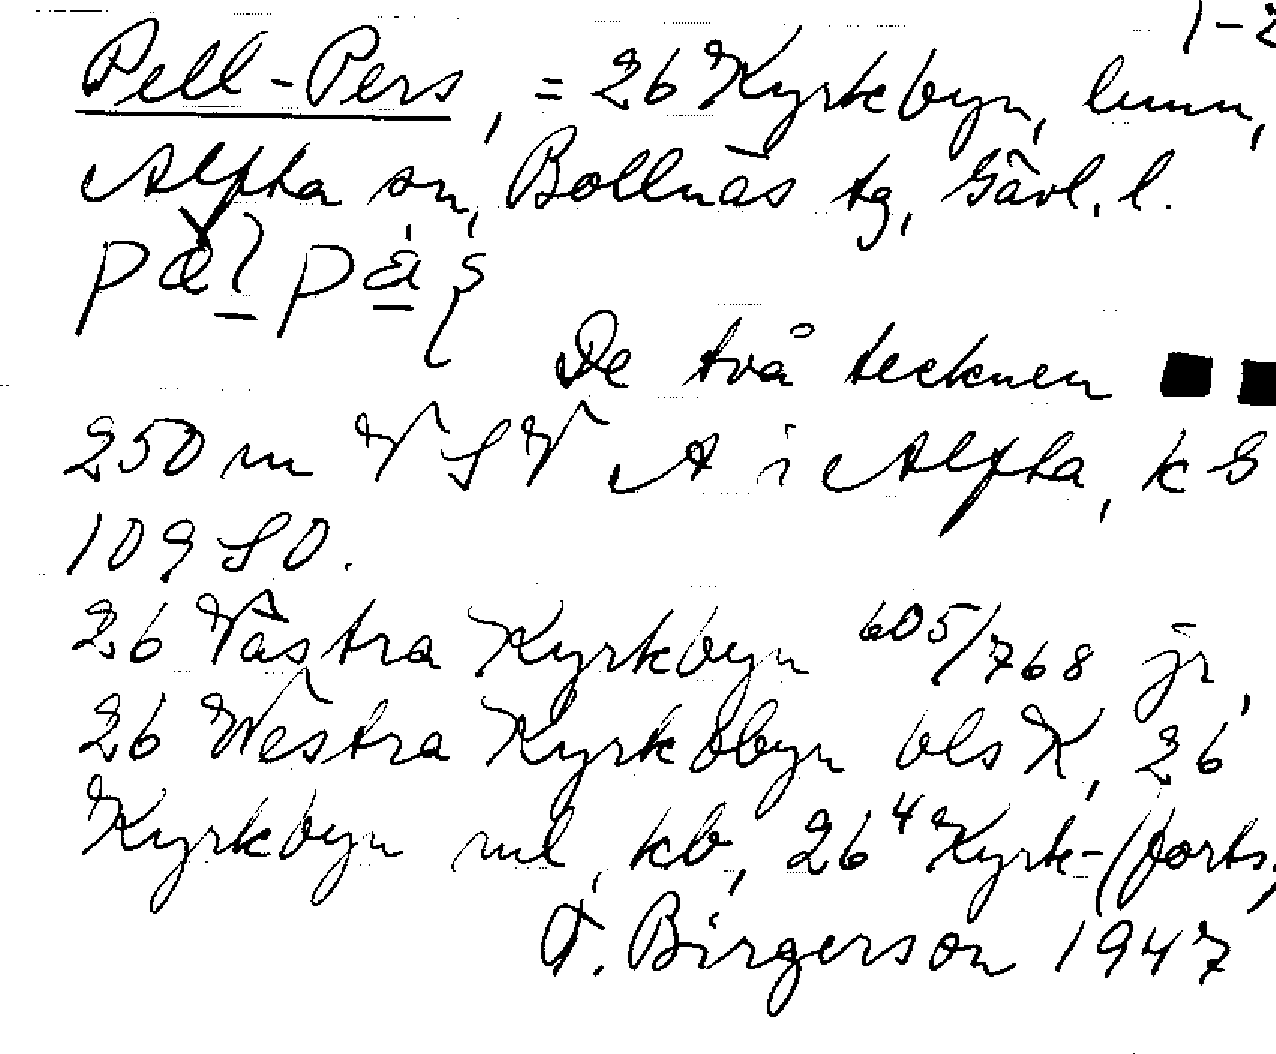 1-2
Pell-Pers, = 26 Kyrkbyn, hmn,
Alfta sn, Bollnäs tg, Gävl. l.
De två tecknen ■ ■
250 m VSV A i Alfta, k G
109 SO.
26 Västra Kyrkbyn 605/768 jr,
26 Westra Kyrkobyn bls K, 26
Kyrkbyn ml, kb, 26⁴ Kyrk- (forts,
T. Birgerson 1947